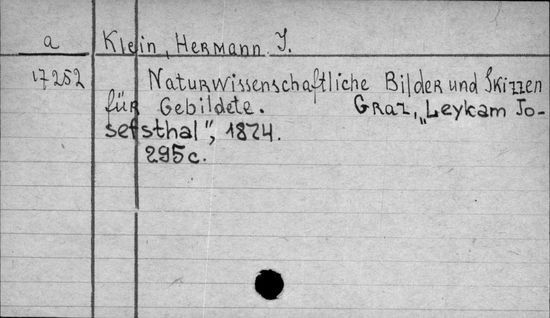 a Klein, Hermann J.
17252 Naturwissenschaftliche Bilder und Skizzen
für Gebildete. Graz, „Leykam Jo-
sefsthal", 1874.
295c.